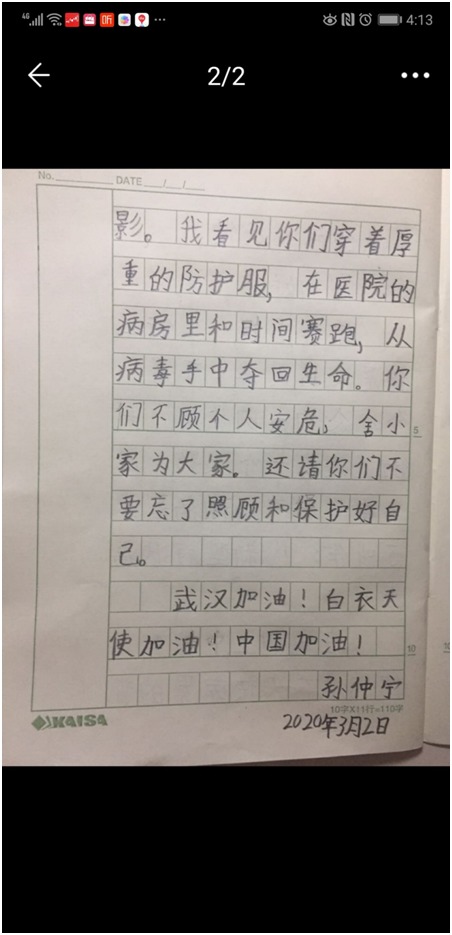 4G 4:13
2/2
No. DATE / /
影。我看见你们穿着厚
重的防护服，在医院的
病房里和时间赛跑，从
病毒手中夺回生命。你
们不顾个人安危，舍小
家为大家。还请你们不
要忘了照顾和保护好自
己。
武汉加油！白衣天
使加油！中国加油！
孙仲宁
5
10
10字X11行=110字
KAISA
2020年3月2日